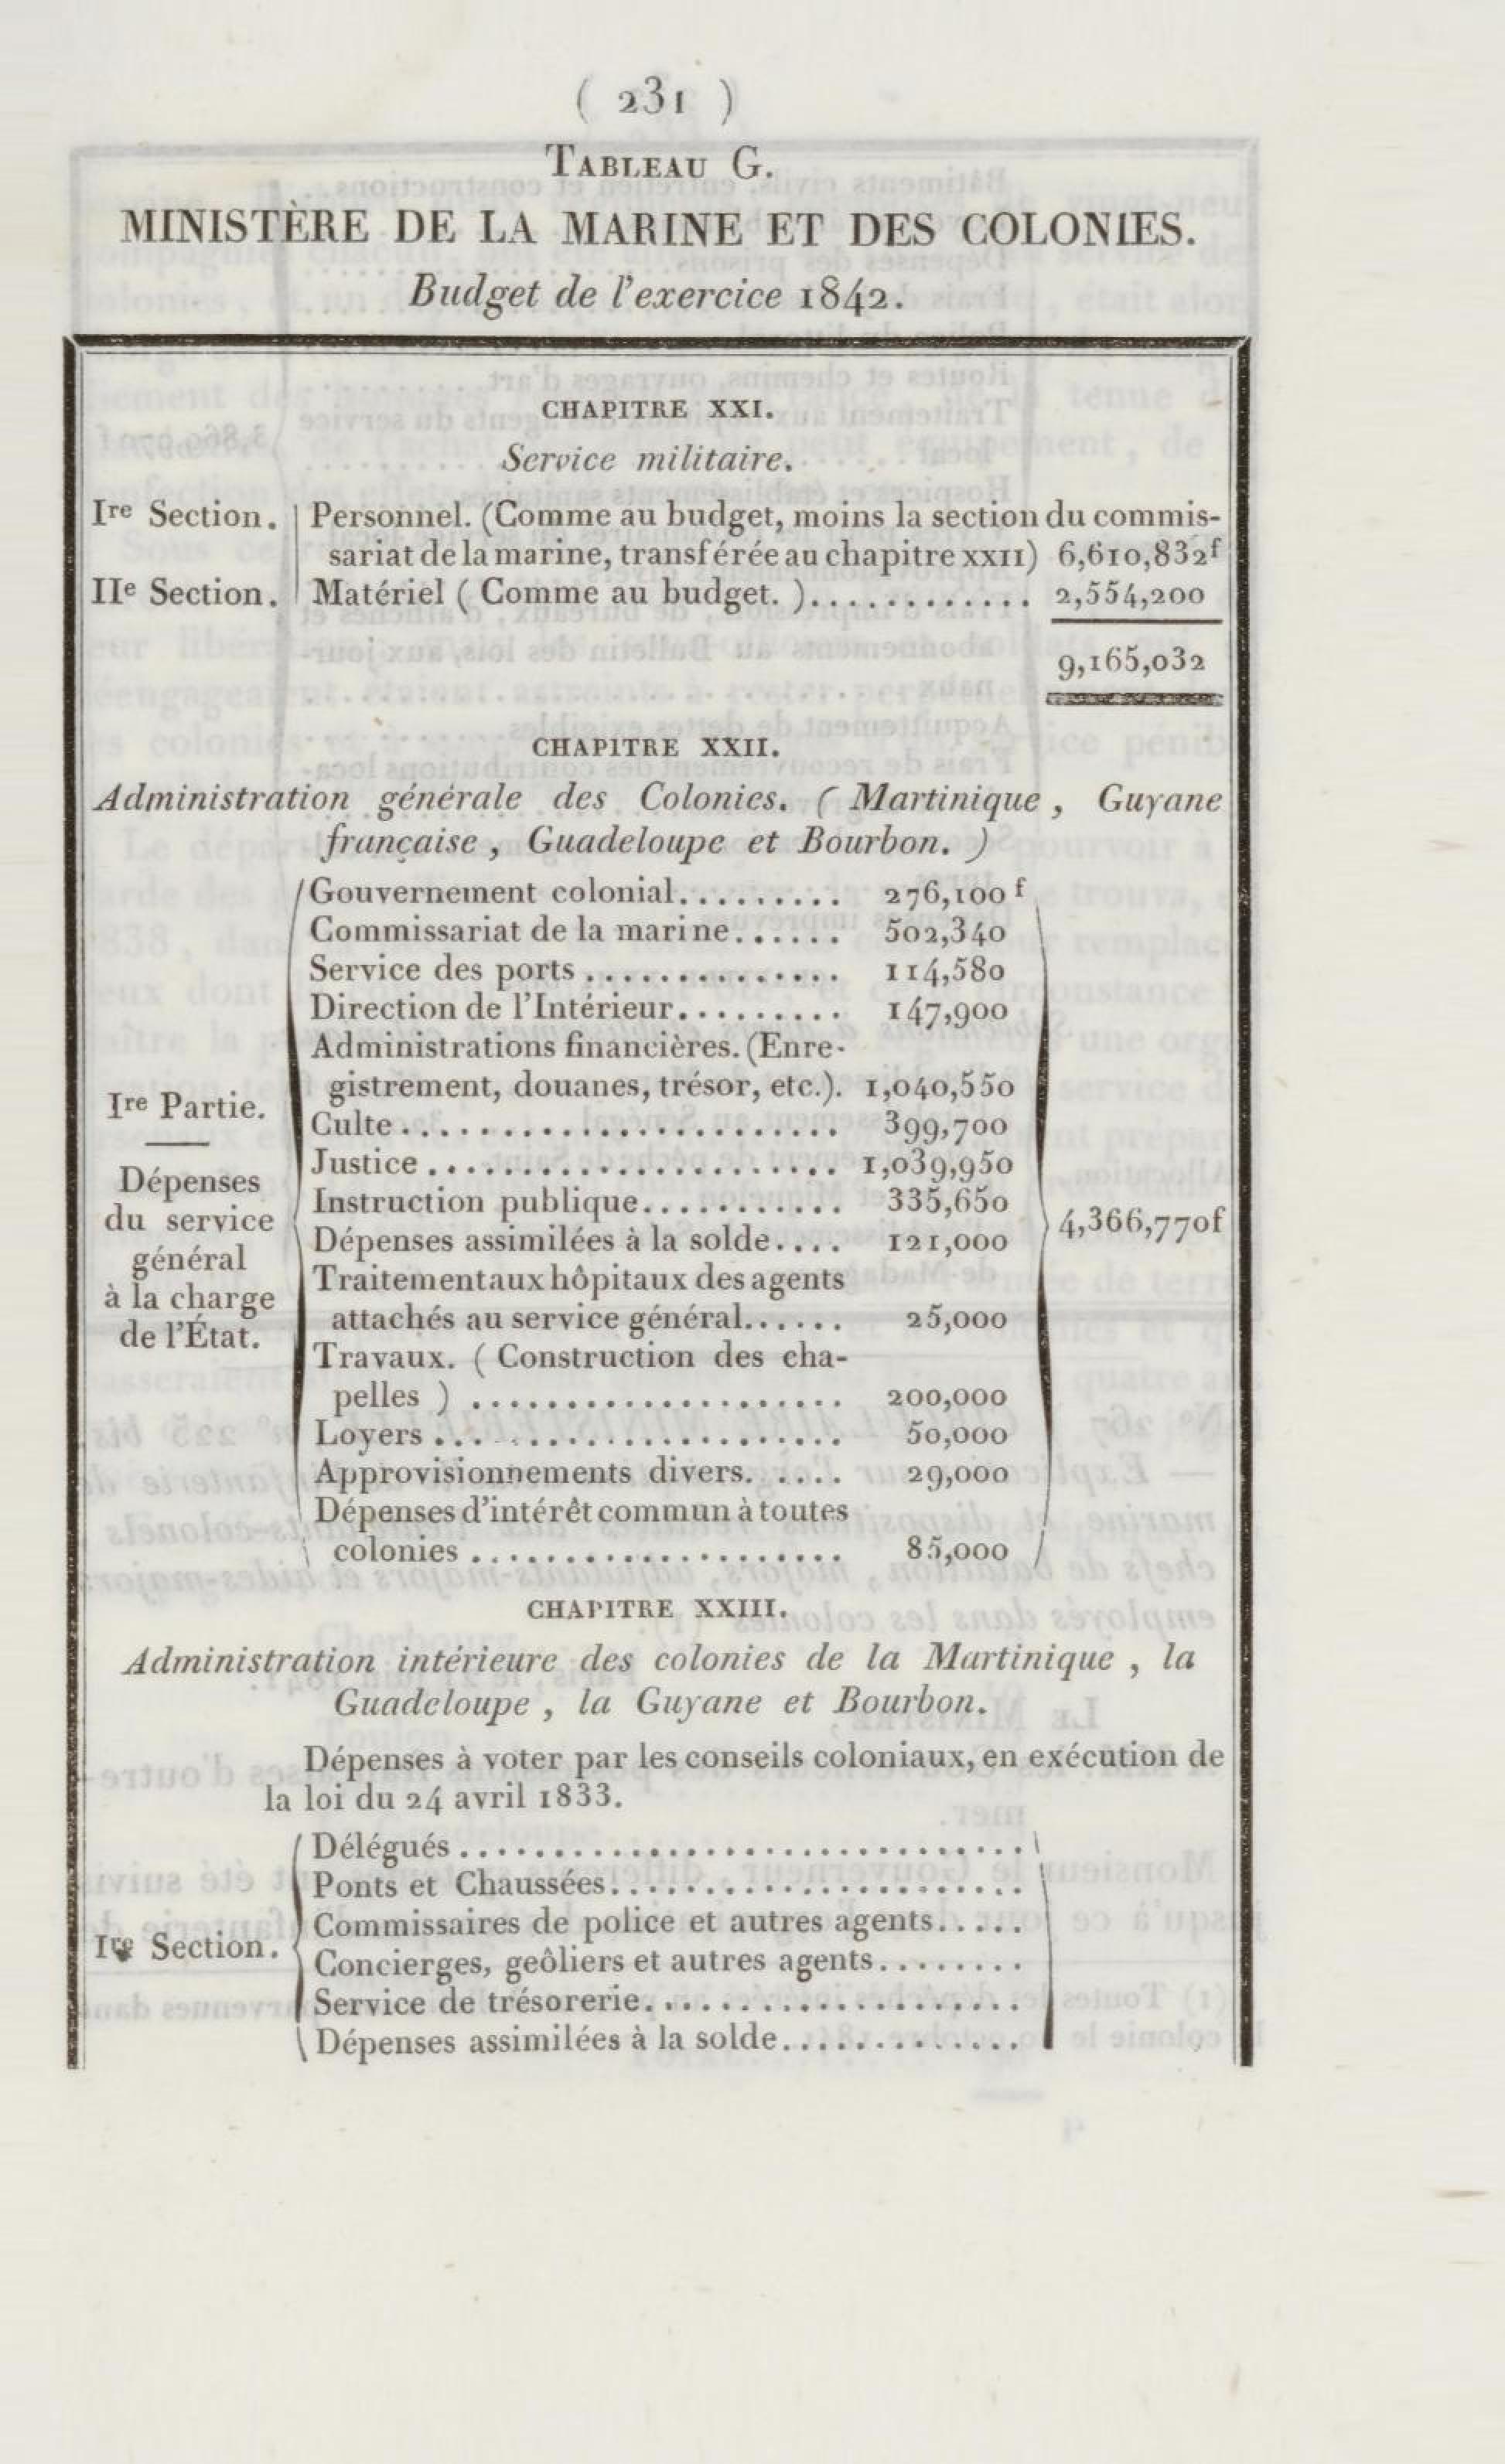 ( 231 )
TABLEAU G.
MINISTÈRE DE LA MARINE ET DES COLONIES.
Budget de l'exercice 1842.
CHAPITRE XXI.
Service militaire.
Ire Section. Personnel. (Comme au budget, moins la section du commis-
sariat de la marine, transférée au chapitre XXII) 6,610,832f
IIe Section. Matériel ( Comme au budget. )............ 2,554,200
9,165,032
CHAPITRE XXII.
Administration générale des Colonies. ( Martinique, Guyane
française, Guadeloupe et Bourbon. )
Gouvernement colonial......... 276,100 f
Commissariat de la marine...... 502,340
Service des ports.............. 114,580
Direction de l'Intérieur......... 147,900
Administrations financières. (Enre-
gistrement, douanes, trésor, etc.). 1,040,550
Ire Partie.
Culte....................... 399,700
Justice...................... 1,039,950
Dépenses
Instruction publique........... 335,650
du service
4,366,770f
Dépenses assimilées à la solde.... 121,000
général
Traitement aux hôpitaux des agents
à la charge
attachés au service général...... 25,000
de l'État.
Travaux. ( Construction des cha-
pelles ) .................... 200,000
Loyers...................... 50,000
Approvisionnements divers...... 29,000
Dépenses d'intérêt commun à toutes
colonies.................... 85,000
CHAPITRE XXIII.
Administration intérieure des colonies de la Martinique, la
Guadeloupe, la Guyane et Bourbon.
Dépenses à voter par les conseils coloniaux, en exécution de
la loi du 24 avril 1833.
Délégués..............................
Ponts et Chaussées......................
Commissaires de police et autres agents.....
Ire Section.
Concierges, geôliers et autres agents........
Service de trésorerie....................
Dépenses assimilées à la solde.............